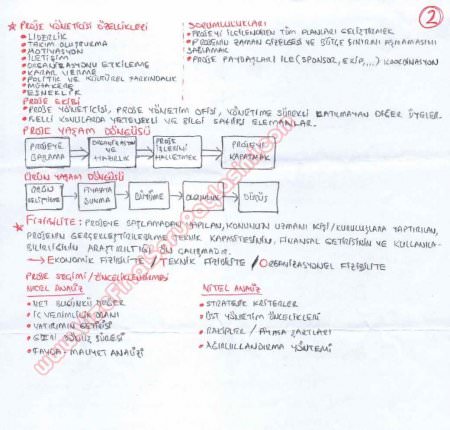 2
* PROJE YÖNETİCİSİ ÖZELLİKLERİ
• LİDERLİK
• TAKIM OLUŞTURMA
• MOTİVASYON
• İLETİŞİM
• ORGANİZASYONU ETKİLEME
• KARAR VERME
• POLİTİK VE KÜLTÜREL FARKINDALIK
• MÜZAKERE
• ESNEKLİK
SORUMLULUKLARI
• PROJEYİ İLGİLENDİREN TÜM PLANLARI GELİŞTİRMEK
• PROJENİN ZAMAN ÇİZELGESİ VE BÜTÇE SINIRINI AŞMAMASINI
SAĞLAMAK
• PROJE PAYDAŞLARI İLE (SPONSOR, EKİP,...) KOORDİNASYON
PROJE EKİBİ
• PROJE YÖNETİCİSİ, PROJE YÖNETİM OFİSİ, YÖNETİME SÜREKLİ KATILMAYAN DİĞER ÜYELER.
• BELLİ KONULARDA YETENEKLİ VE BİLGİ SAHİBİ ELEMANLAR.
PROJE YAŞAM DÖNGÜSÜ
PROJEYE BAŞLAMA
ORGANİZASYON VE HAZIRLIK
PROJE İŞLERİNİ HALLETMEK
PROJEYİ KAPATMAK
ÜRÜN YAŞAM DÖNGÜSÜ
ÜRÜN GELİŞTİRME
PİYASAYA SUNMA
BÜYÜME
OLGUNLUK
DÜŞÜŞ
* FİZİBİLİTE: PROJEYE BAŞLAMADAN YAPILAN, KONUNUN UZMANI KİŞİ/KURULUŞLARA YAPTIRILAN,
PROJENİN GERÇEKLEŞTİRİLEBİLME TEKNİK KAPASİTESİNİN, FİNANSAL GETİRİSİNİN VE KULLANILA-
BİLİRLİĞİNİN ARAŞTIRILDIĞI ÖN ÇALIŞMADIR.
→ EKONOMİK FİZİBİLİTE / TEKNİK FİZİBİLİTE / ORGANİZASYONEL FİZİBİLİTE
PROJE SEÇİMİ / ÖNCELİKLENDİRMESİ
NİCEL ANALİZ
• NET BUGÜNKÜ DEĞER
• İÇ VERİMLİLİK ORANI
• YATIRIMIN GETİRİSİ
• GERİ DÖNÜŞ SÜRESİ
• FAYDA - MALİYET ANALİZİ
NİTEL ANALİZ
• STRATEJİK KRİTERLER
• ÜST YÖNETİM ÖNCELİKLERİ
• RAKİPLER / PİYASA ŞARTLARI
• AĞIRLIKLANDIRMA YÖNTEMİ